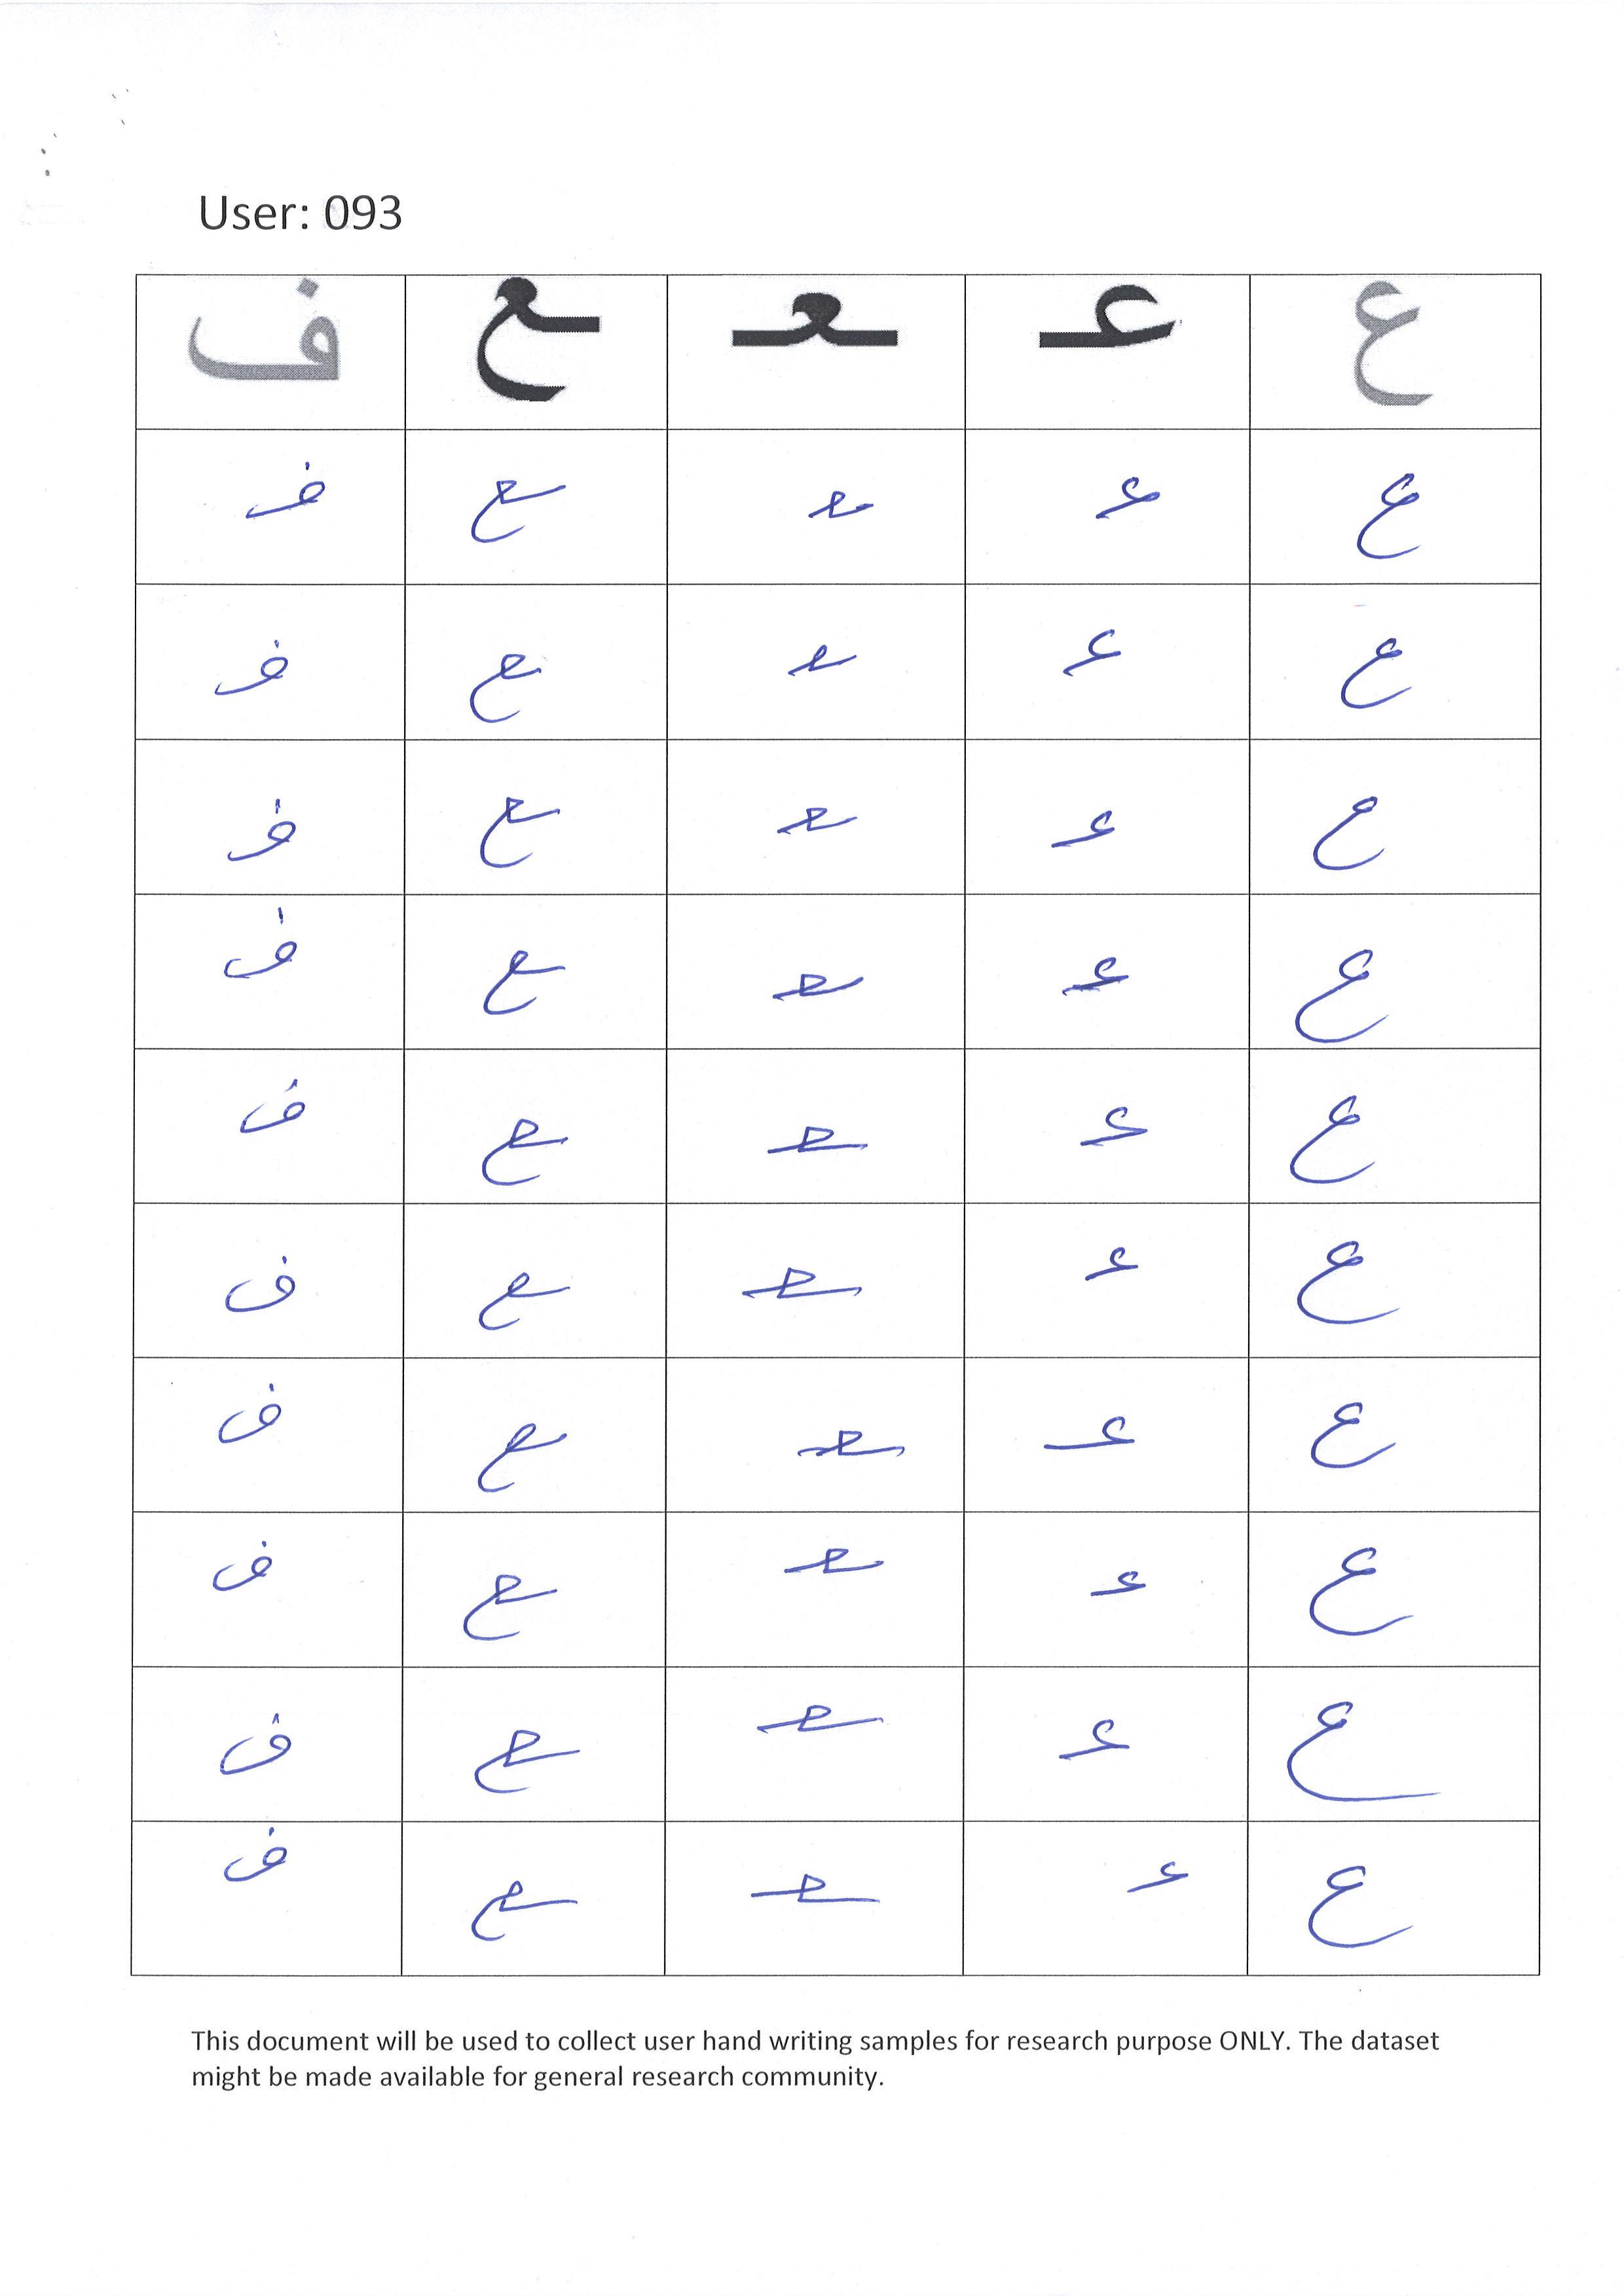 User: 093
ع عـ ـعـ ـع ف
ع عـ ـعـ ـع ف
ع عـ ـعـ ـع ف
ع عـ ـعـ ـع ف
ع عـ ـعـ ـع ف
ع عـ ـعـ ـع ف
ع عـ ـعـ ـع ف
ع عـ ـعـ ـع ف
ع عـ ـعـ ـع ف
ع عـ ـعـ ـع ف
ع عـ ـعـ ـع ف
This document will be used to collect user hand writing samples for research purpose ONLY. The dataset
might be made available for general research community.